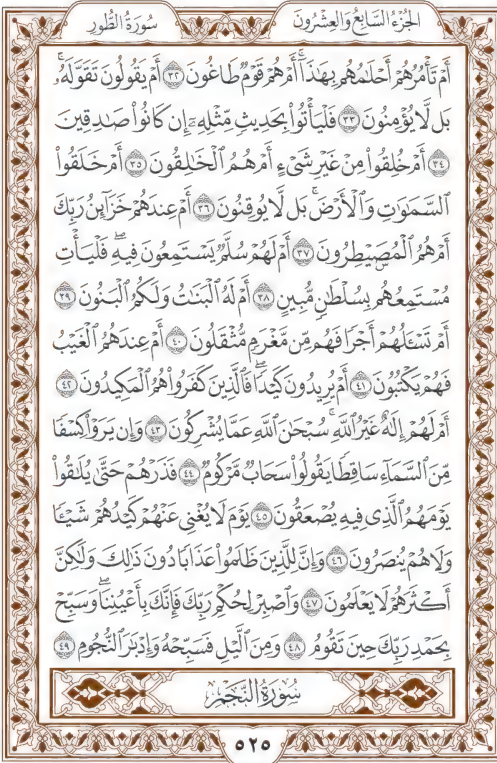 سُورَةُ الطُّورِ الجُزْءُ السَّابِعُ وَالعِشْرُونَ
أَمْ تَأْمُرُهُمْ أَحْلَٰمُهُم بِهَٰذَآۚ أَمْ هُمْ قَوْمٌ طَاغُونَ ٣٢ أَمْ يَقُولُونَ تَقَوَّلَهُۥۚ
بَل لَّا يُؤْمِنُونَ ٣٣ فَلْيَأْتُوا۟ بِحَدِيثٍ مِّثْلِهِۦٓ إِن كَانُوا۟ صَٰدِقِينَ
٣٤ أَمْ خُلِقُوا۟ مِنْ غَيْرِ شَىْءٍ أَمْ هُمُ ٱلْخَٰلِقُونَ ٣٥ أَمْ خَلَقُوا۟
ٱلسَّمَٰوَٰتِ وَٱلْأَرْضَۚ بَل لَّا يُوقِنُونَ ٣٦ أَمْ عِندَهُمْ خَزَآئِنُ رَبِّكَ
أَمْ هُمُ ٱلْمُصَۣيْطِرُونَ ٣٧ أَمْ لَهُمْ سُلَّمٌ يَسْتَمِعُونَ فِيهِۖ فَلْيَأْتِ
مُسْتَمِعُهُم بِسُلْطَٰنٍ مُّبِينٍ ٣٨ أَمْ لَهُ ٱلْبَنَٰتُ وَلَكُمُ ٱلْبَنُونَ ٣٩
أَمْ تَسْـَٔلُهُمْ أَجْرًا فَهُم مِّن مَّغْرَمٍ مُّثْقَلُونَ ٤٠ أَمْ عِندَهُمُ ٱلْغَيْبُ
فَهُمْ يَكْتُبُونَ ٤١ أَمْ يُرِيدُونَ كَيْدًاۖ فَٱلَّذِينَ كَفَرُوا۟ هُمُ ٱلْمَكِيدُونَ ٤٢
أَمْ لَهُمْ إِلَٰهٌ غَيْرُ ٱللَّهِۚ سُبْحَٰنَ ٱللَّهِ عَمَّا يُشْرِكُونَ ٤٣ وَإِن يَرَوْا۟ كِسْفًا
مِّنَ ٱلسَّمَآءِ سَاقِطًا يَقُولُوا۟ سَحَابٌ مَّرْكُومٌ ٤٤ فَذَرْهُمْ حَتَّىٰ يُلَٰقُوا۟
يَوْمَهُمُ ٱلَّذِى فِيهِ يُصْعَقُونَ ٤٥ يَوْمَ لَا يُغْنِى عَنْهُمْ كَيْدُهُمْ شَيْـًٔا
وَلَا هُمْ يُنصَرُونَ ٤٦ وَإِنَّ لِلَّذِينَ ظَلَمُوا۟ عَذَابًا دُونَ ذَٰلِكَ وَلَٰكِنَّ
أَكْثَرَهُمْ لَا يَعْلَمُونَ ٤٧ وَٱصْبِرْ لِحُكْمِ رَبِّكَ فَإِنَّكَ بِأَعْيُنِنَاۖ وَسَبِّحْ
بِحَمْدِ رَبِّكَ حِينَ تَقُومُ ٤٨ وَمِنَ ٱلَّيْلِ فَسَبِّحْهُ وَإِدْبَٰرَ ٱلنُّجُومِ ٤٩
سُورَةُ النَّجْمِ
٥٢٥